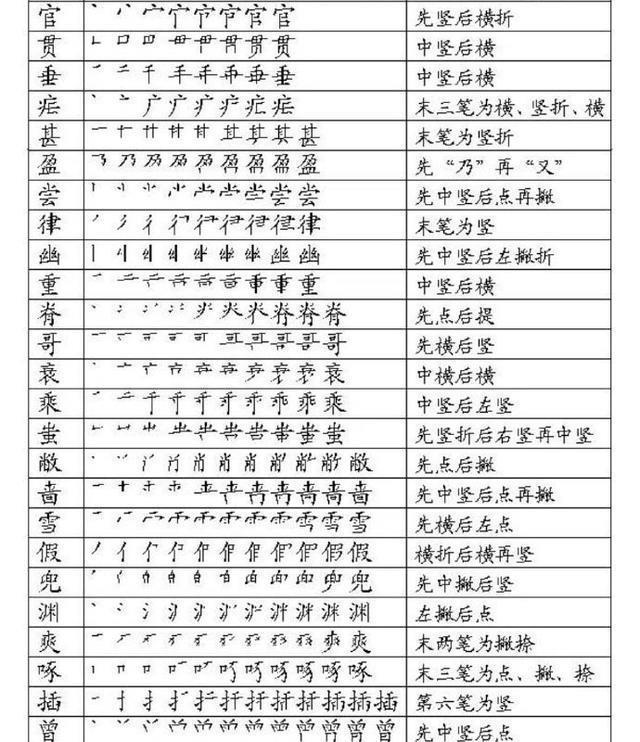 官 先竖后横折
贯 中竖后横
垂 中竖后横
疟 末三笔为横、竖折、横
甚 末笔为竖折
盈 先“乃”再“又”
尝 先中竖后点再撇
律 末笔为竖
幽 先中竖后左撇折
重 中竖后横
脊 先点后提
哥 先横后竖
衰 中横后横
乘 中竖后左竖
蚩 先竖折后右竖再中竖
敝 先点后撇
啬 先中竖后点再撇
雪 先横后左点
假 横折后横再竖
兜 先中撇后竖
渊 左撇后点
爽 末两笔为撇捺
啄 末三笔为点、撇、捺
插 第六笔为竖
曾 先中竖后点